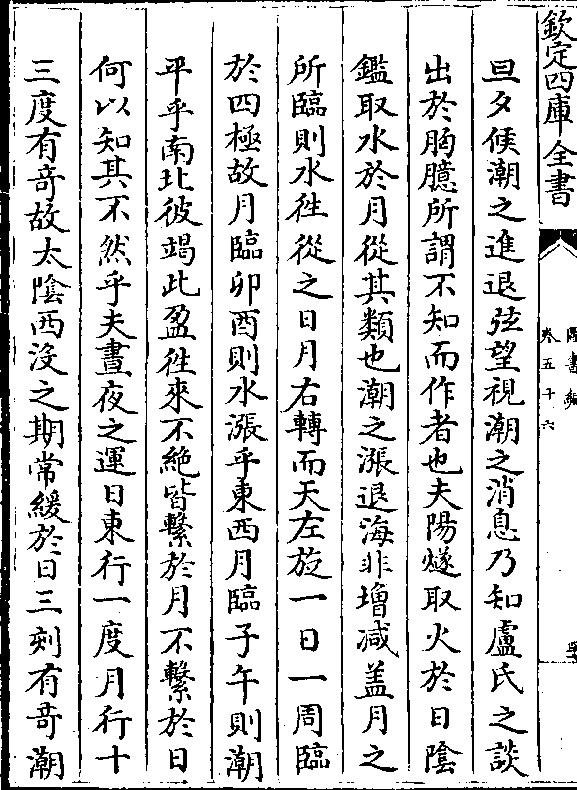 欽定四庫全書
圖書編
卷五十六
旦夕候潮之進退弦望視潮之消息乃知盧氏之談
出於胸臆所謂不知而作者也夫陽燧取火於日陰
鑑取水於月從其類也潮之漲退海非增減盖月之
所臨則水徃從之日月右轉而天左旋一日一周臨
於四極故月臨卯酉則水漲乎東西月臨子午則潮
平乎南北彼竭此盈徃來不絶皆繫於月不繫於日
何以知其不然乎夫晝夜之運日東行一度月行十
三度有竒故太隂西沒之期常緩於日三刻有竒潮